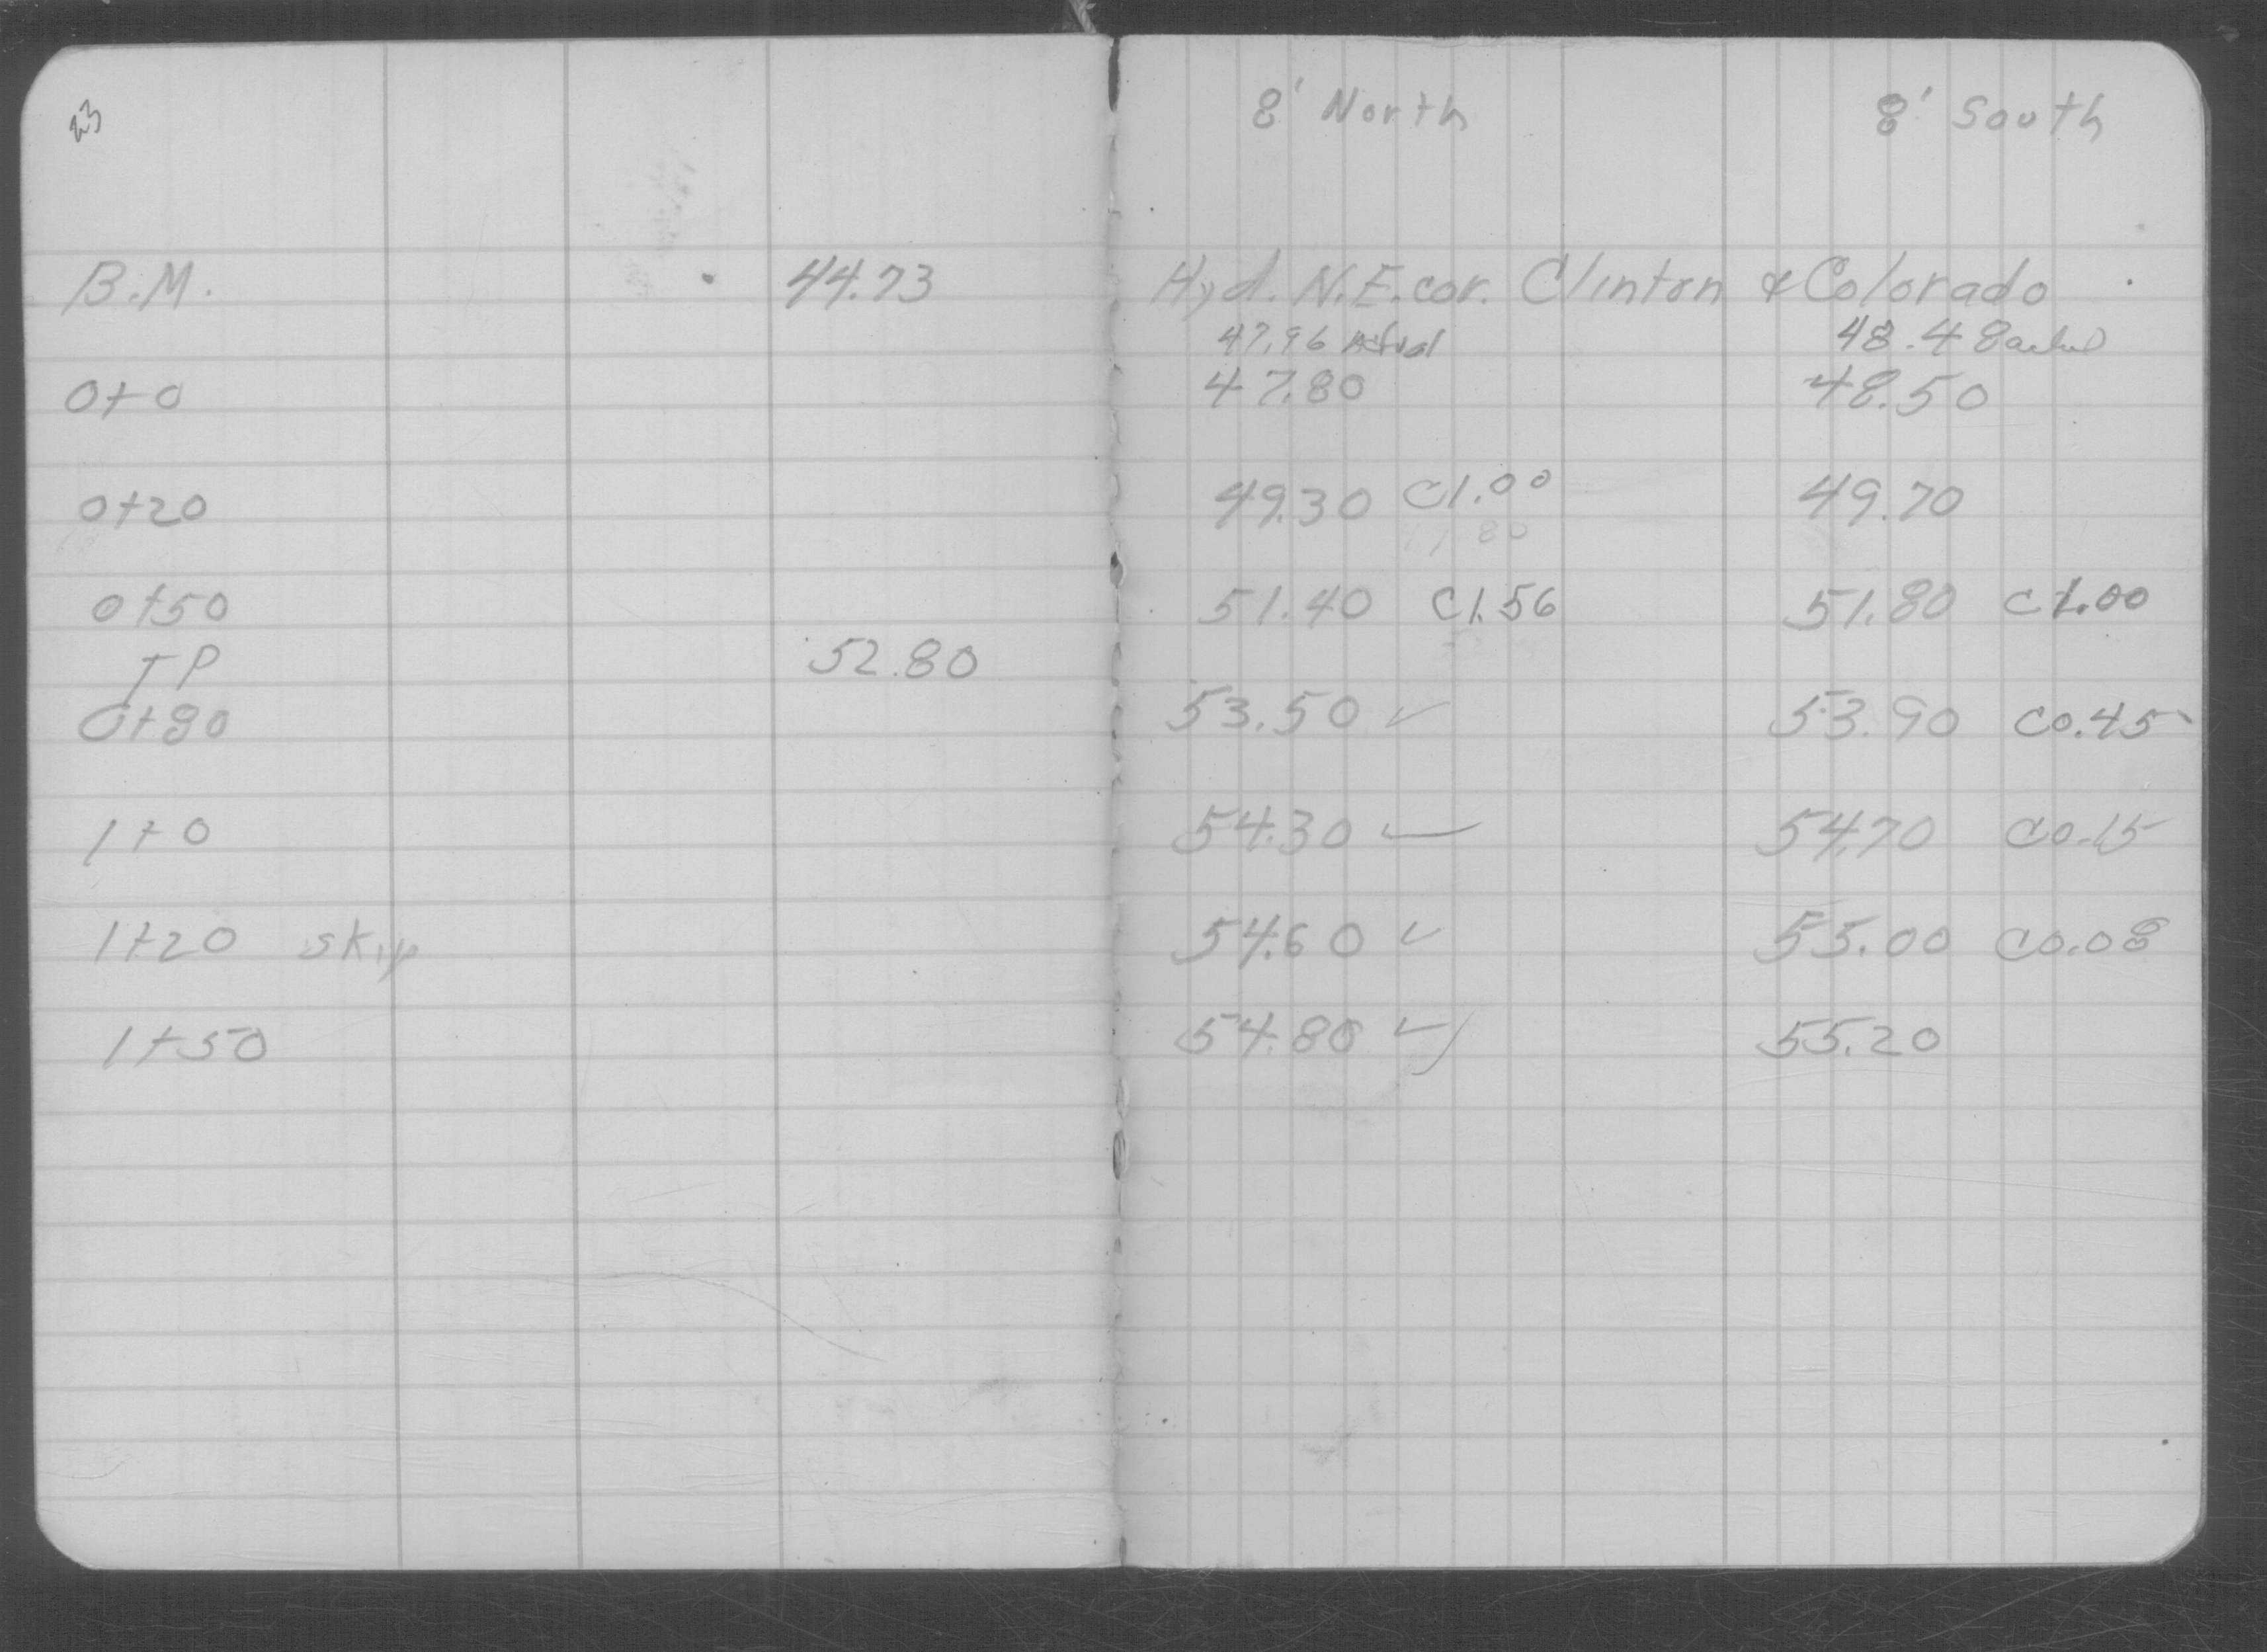 23
8' North 8' South
B.M. 44.73 Hyd. N.E. cor. Clinton & Colorado
47.96 Actual 48.48 actual
0+0 47.80 48.50
0+20 49.30 C1.00 49.70
51.40 C1.56 51.80 C1.00
0+50
TP 52.80
0+80 53.50 ✓ 53.90 C0.45
1+0 54.30 ✓ 54.70 C0.15
1+20 skip 54.60 ✓ 55.00 C0.08
1+50 54.80 ✓ 55.20